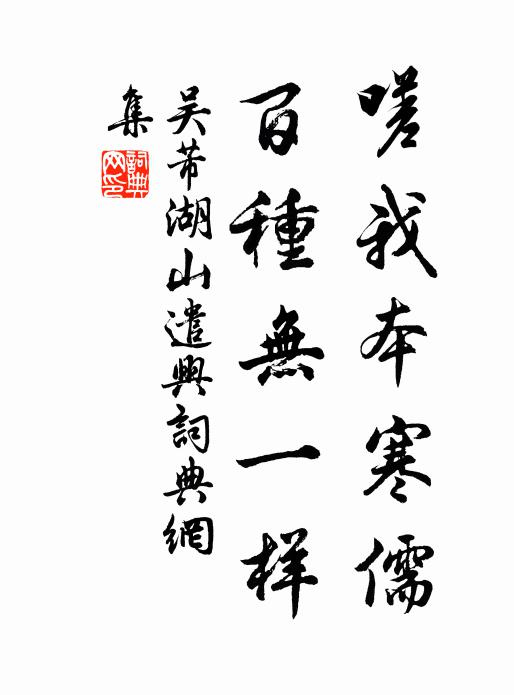 嗟我本寒儒
百種無一样
吴芾湖山遣興詞典網
集
詞典網印